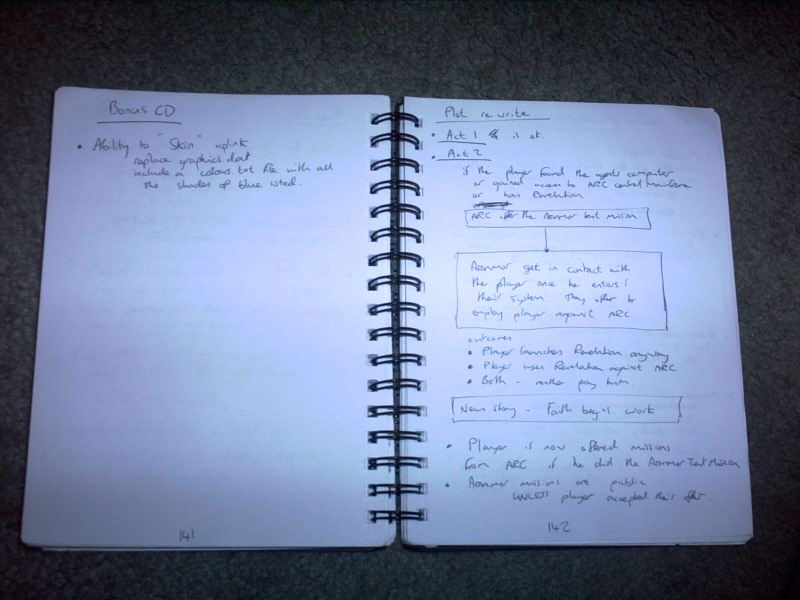 Bonus CD
• Ability to "Skin" uplink
replace graphics.dat
include a colours.txt file with all
the shades of blue listed.
141
Plot rewrite.
• Act 1 is ok.
• Act 2
if the player found the agents computer
or gained access to ARC central mainframe
or has Revelation
ARC offer the Arunmor test mission
Arunmor get in contact with
the player once he enters
their system. They offer to
employ player against ARC.
outcomes
• Player launches Revelation anyway
• Player uses Revelation against ARC
• Both - neither pay him.
News story - Faith begins work
• Player is now offered missions
from ARC if he did the Arunmor Test Mission
• Arunmor missions are public
UNLESS player accepted their offer
142